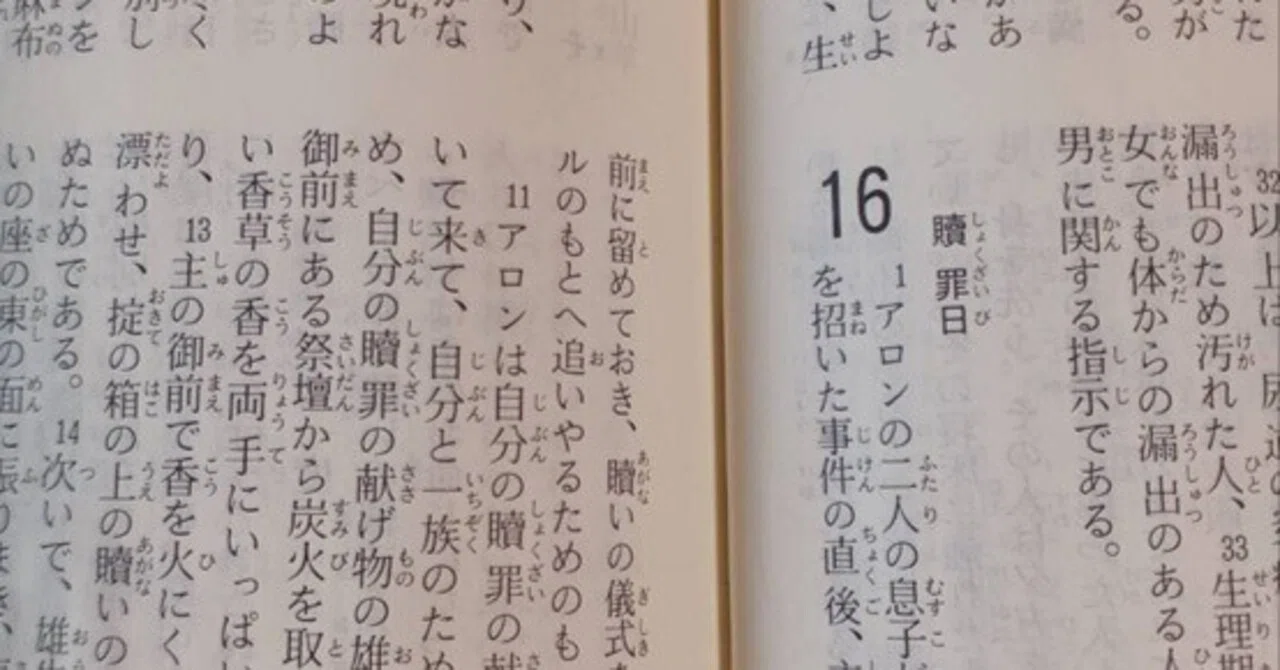 れた
る。
があ
いな
しよ
、生
32以上は
漏出のため汚れた人、33生理期
女でも体からの漏出のある人
男に関する指示である。
贖罪日
16
1アロンの二人の息子が
を招いた事件の直後、
り、
がな
現れ
のよ
別し
を
麻布
前に留めておき、贖いの儀式を
ルのもとへ追いやるためのも
11アロンは自分の贖罪の献
いて来て、自分と一族のため
め、自分の贖罪の献げ物の雄
御前にある祭壇から炭火を取
い香草の香を両手にいっぱい
り、13主の御前で香を火にく
漂わせ、掟の箱の上の贖いの
ぬためである。14次いで、雄牛
いの座の東の面に振りまき、